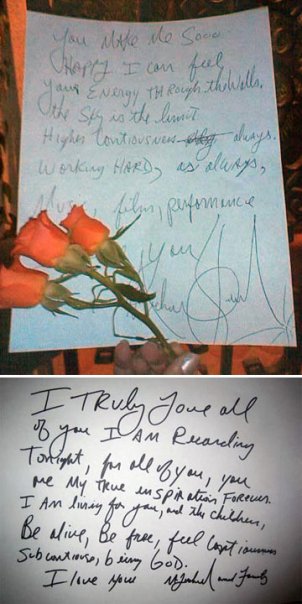 You Make Me Sooo
HAPPY I can feel
your ENERGY THROUGH the Walls.
the Sky is the limit
Higher Contiousness always.
WORKING HARD, as always,
Music film, performance
you
I TRuly Love all
of you I AM Recording
Tonight, for all of you, you
are My TRue inSPiRation Forever.
I AM living for you, and the children,
Be alive, Be free, feel Contiousness
Subcontiouse, being GOD.
I love you Michael and Family